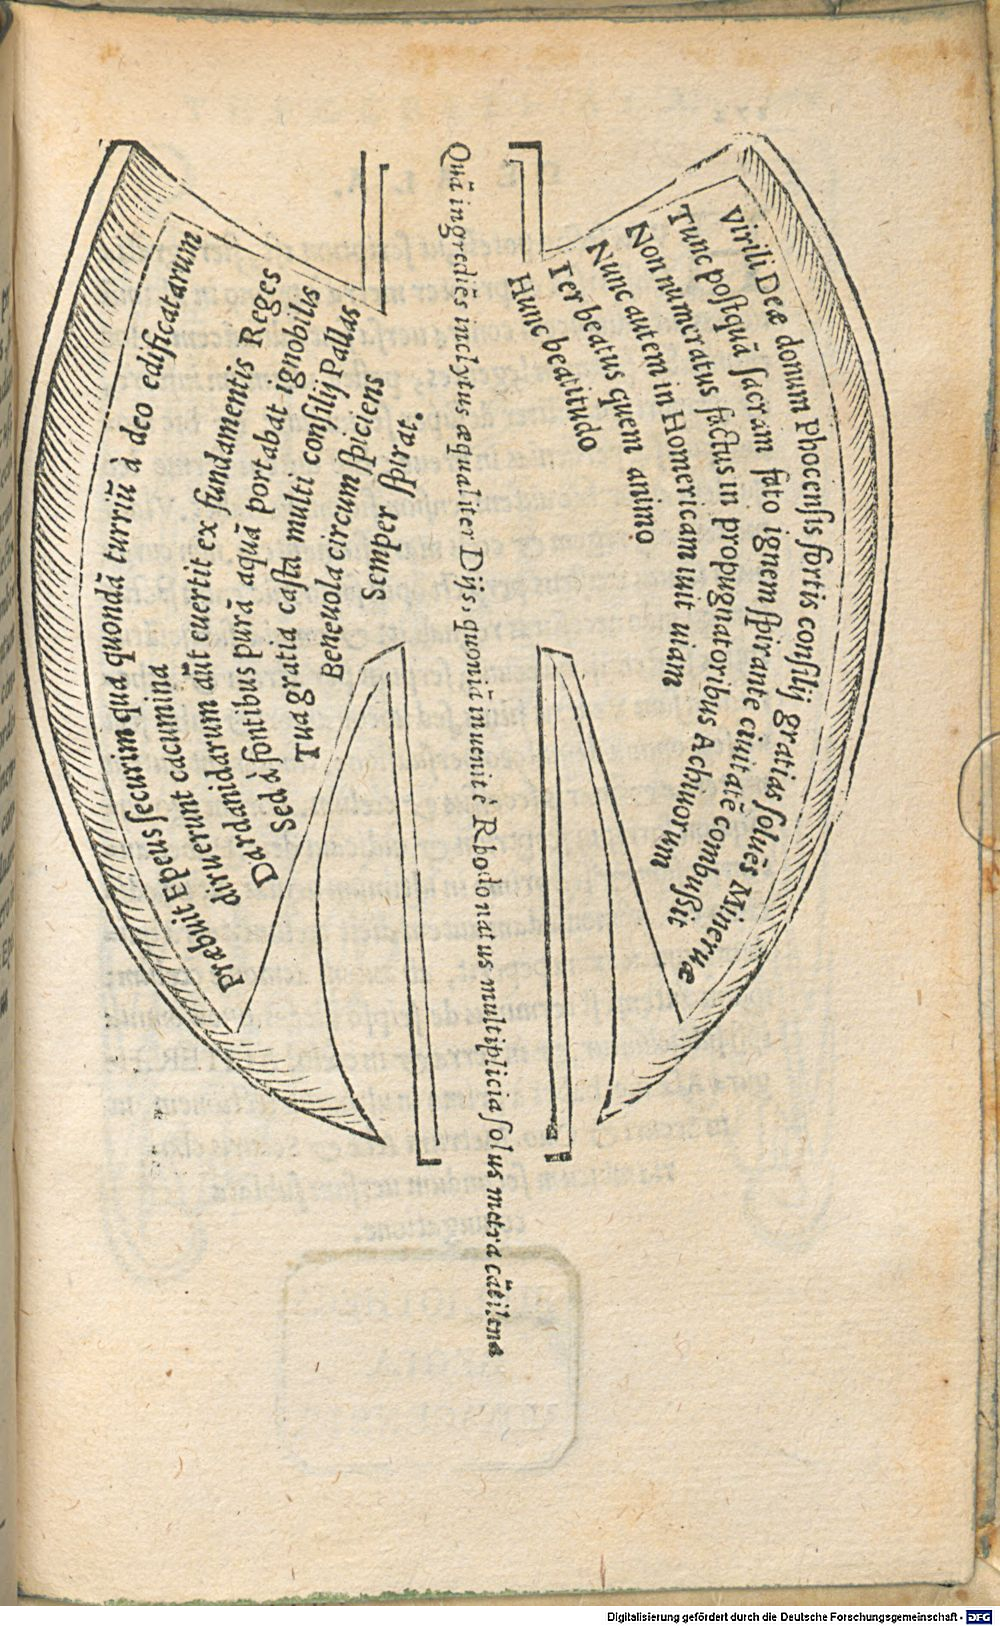 Virili Deæ donum Phocenſis fortis conſilij gratias ſoluēs Mineruæ
Tunc poſtquā ſacram fato ignem ſpirante ciuitatē combuſſit
Non numeratus factus in propugnatoribus Achiuorum
Nunc autem in Homericam iuit uiam
Ter beatus quem animo
Hunc beatitudo
Quā ingrediēs inclytus æqualiter Dijs, quoniā inuenit è Rhodo natus multiplicia ſolus metra cātilenæ
Præbuit Epeus ſecurim qua quondā turriū à deo edificatarum
diruerunt cacumina
Dardanidarum aūt euertit ex fundamentis Reges
Sed à fontibus purā aquā portabat ignobilis
Tua gratia caſta multi conſilij Pallas
Beneuola circum ſpiciens
Semper ſpirat.
Digitalisierung gefördert durch die Deutsche Forschungsgemeinschaft - DFG